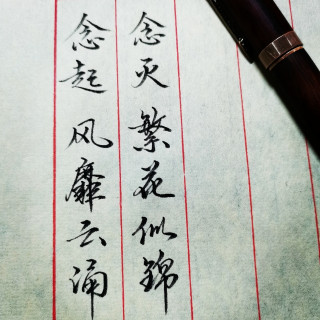 念灭 繁花似锦
念起 风靡云涌